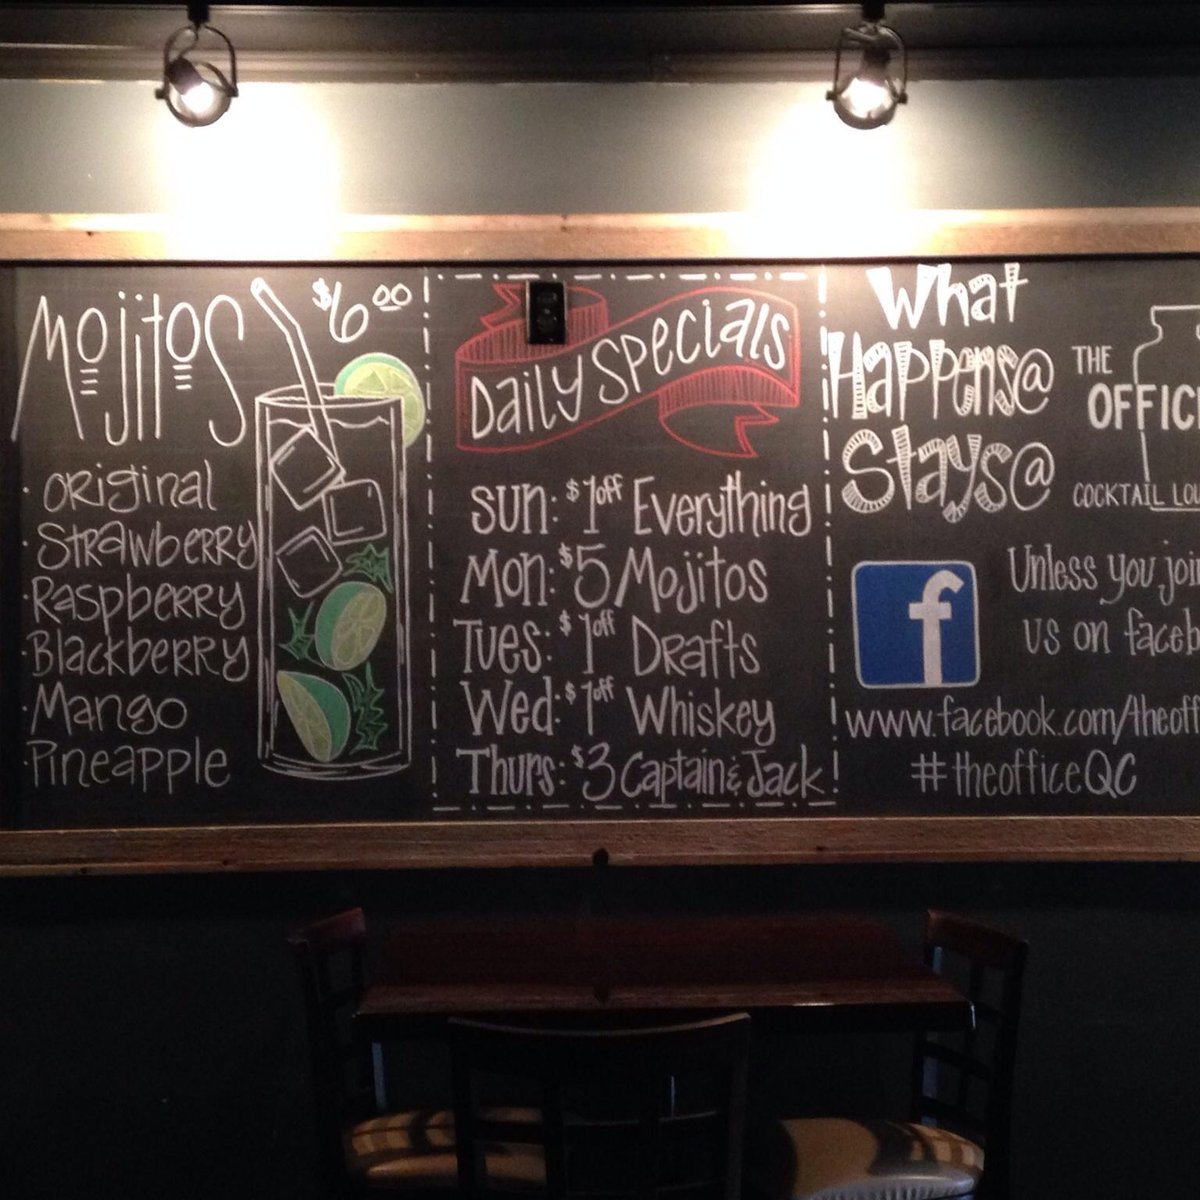 Mojitos $6.00
Original
Strawberry
Raspberry
Blackberry
Mango
Pineapple
Daily Specials
Sun: $1 off Everything
Mon: $5 Mojitos
Tues: $1 off Drafts
Wed: $1 off Whiskey
Thurs: $3 Captain & Jack
What
Happens@
Stays@
THE
OFFIC
COCKTAIL LO
f
Unless you join
us on faceb
www.facebook.com/theoff
#theofficeQC